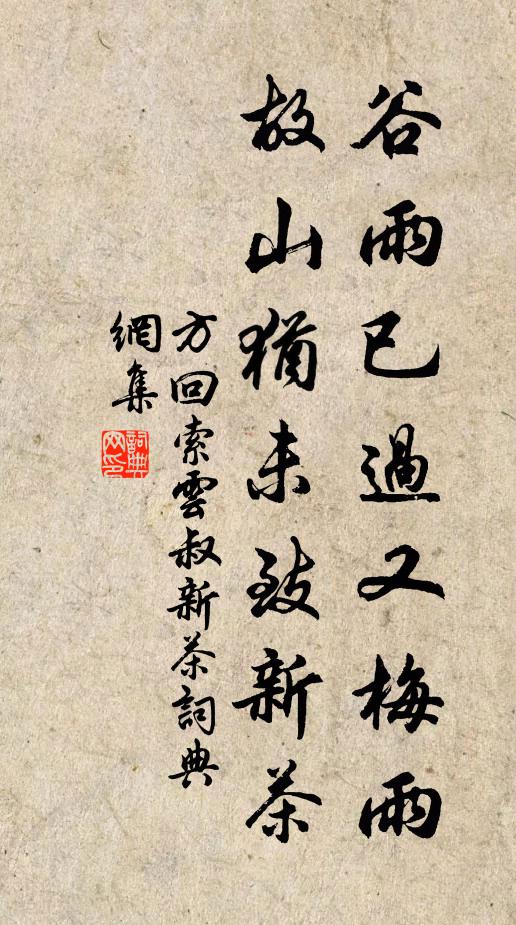 谷雨已過又梅雨
故山猶未致新茶
方回索雲叔新茶詞典
網集
詞典網印